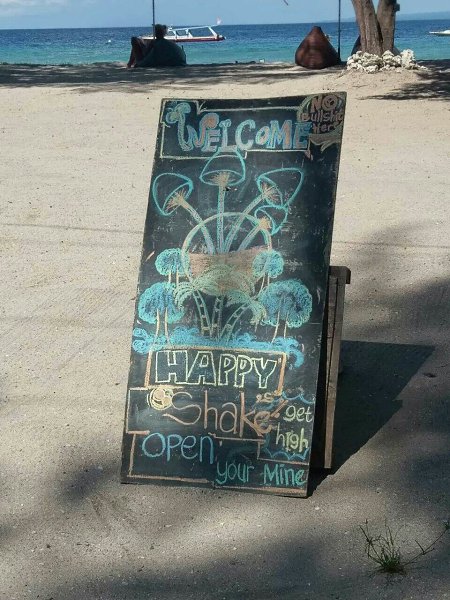 WELCOME
NO
Bullshit
Here
HAPPY
Shake's
get
high
open
your Mine